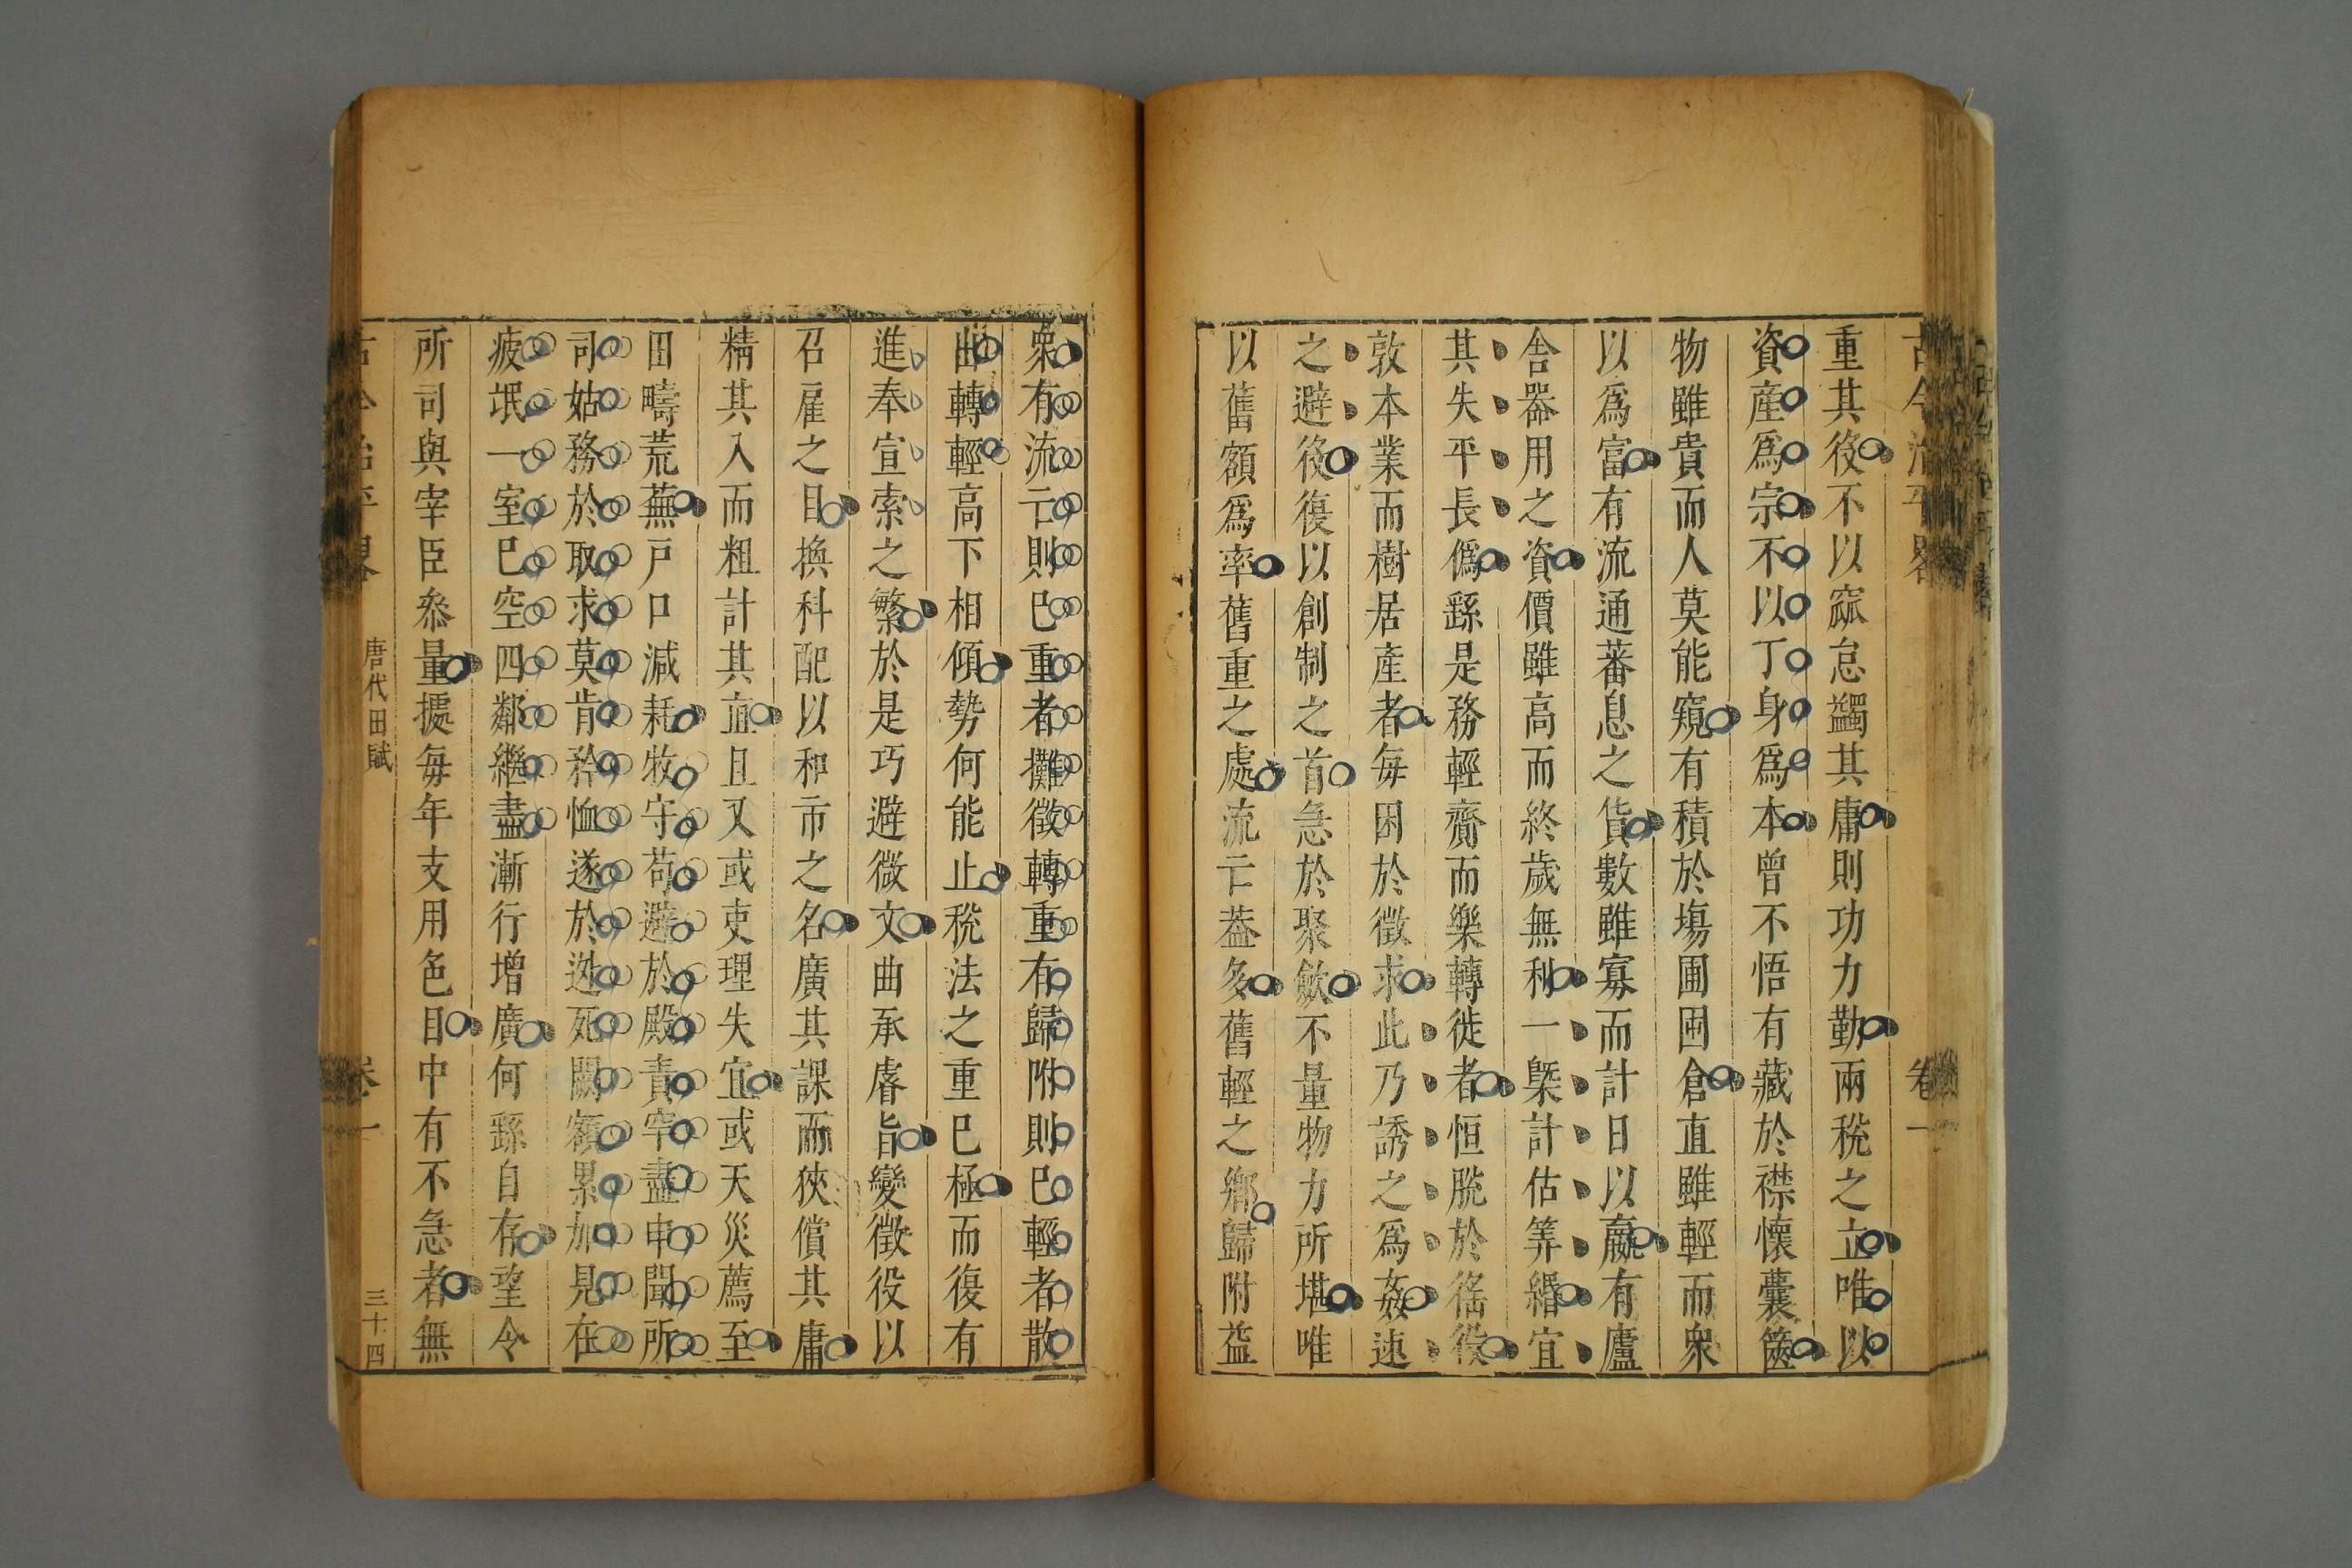 古今治平畧
卷一
重其役不以窳怠蠲其庸則功力勤兩稅之立唯以
資產爲宗不以丁身爲本曾不悟有藏於襟懷囊篋
物雖貴而人莫能窺有積於塲圃囷倉直雖輕而衆
以爲富有流通蕃息之貨數雖寡而計日以贏有廬
舎器用之資價雖高而終歲無利一槩計估筭緡宜
其失平長僞繇是務輕齎而樂轉徙者恒脫於徭役
敦本業而樹居產者每困於徵求此乃誘之爲姦速
之避役復以創制之首急於聚歛不量物力所堪唯
以舊額爲率舊重之處流亡葢多舊輕之鄉歸附益
衆有流亡則已重者攤徵轉重有歸附則已輕者散
出轉輕高下相傾勢何能止稅法之重已極而復有
進奉宣索之繁於是巧避微文曲承睿旨變徵役以
召雇之目換科配以和市之名廣其課而狹償其庸
精其入而粗計其直且又或吏理失宜或天災薦至
田疇荒蕪戸口減耗牧守苟避於殿責罕盡申聞所
司姑務於取求莫肯矜恤遂於逃死闕額累加見在
疲氓一室已空四鄰繼盡漸行增廣何繇自存望令
所司與宰臣叅量據每年支用色目中有不急者無
古今治平畧
唐代田賦
卷一
三十四